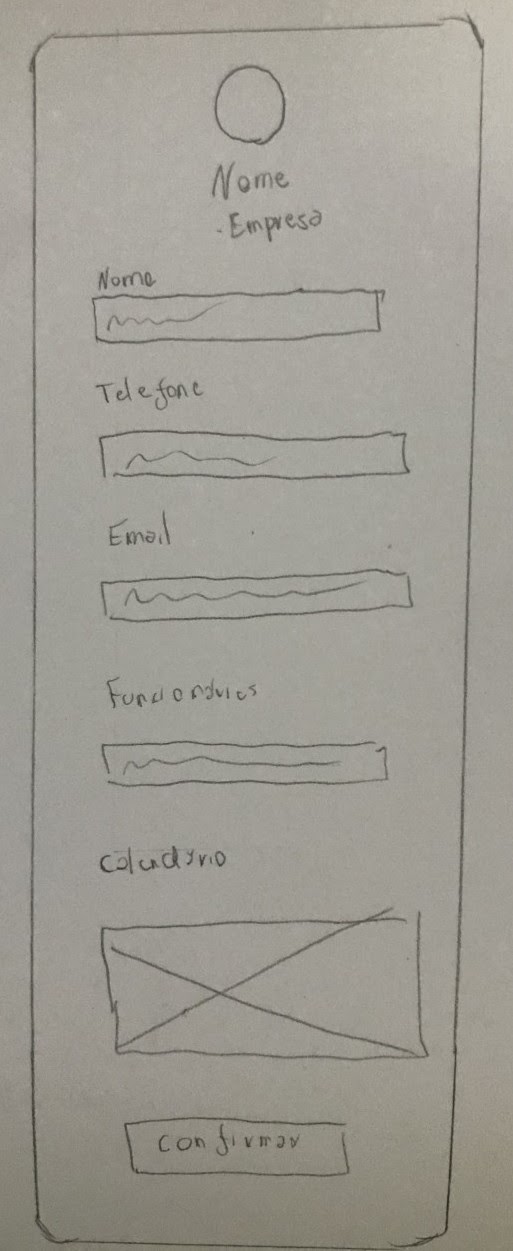 Nome
.Empresa
Nome
Telefone
Email
Funcionários
Calendário
Confirmar